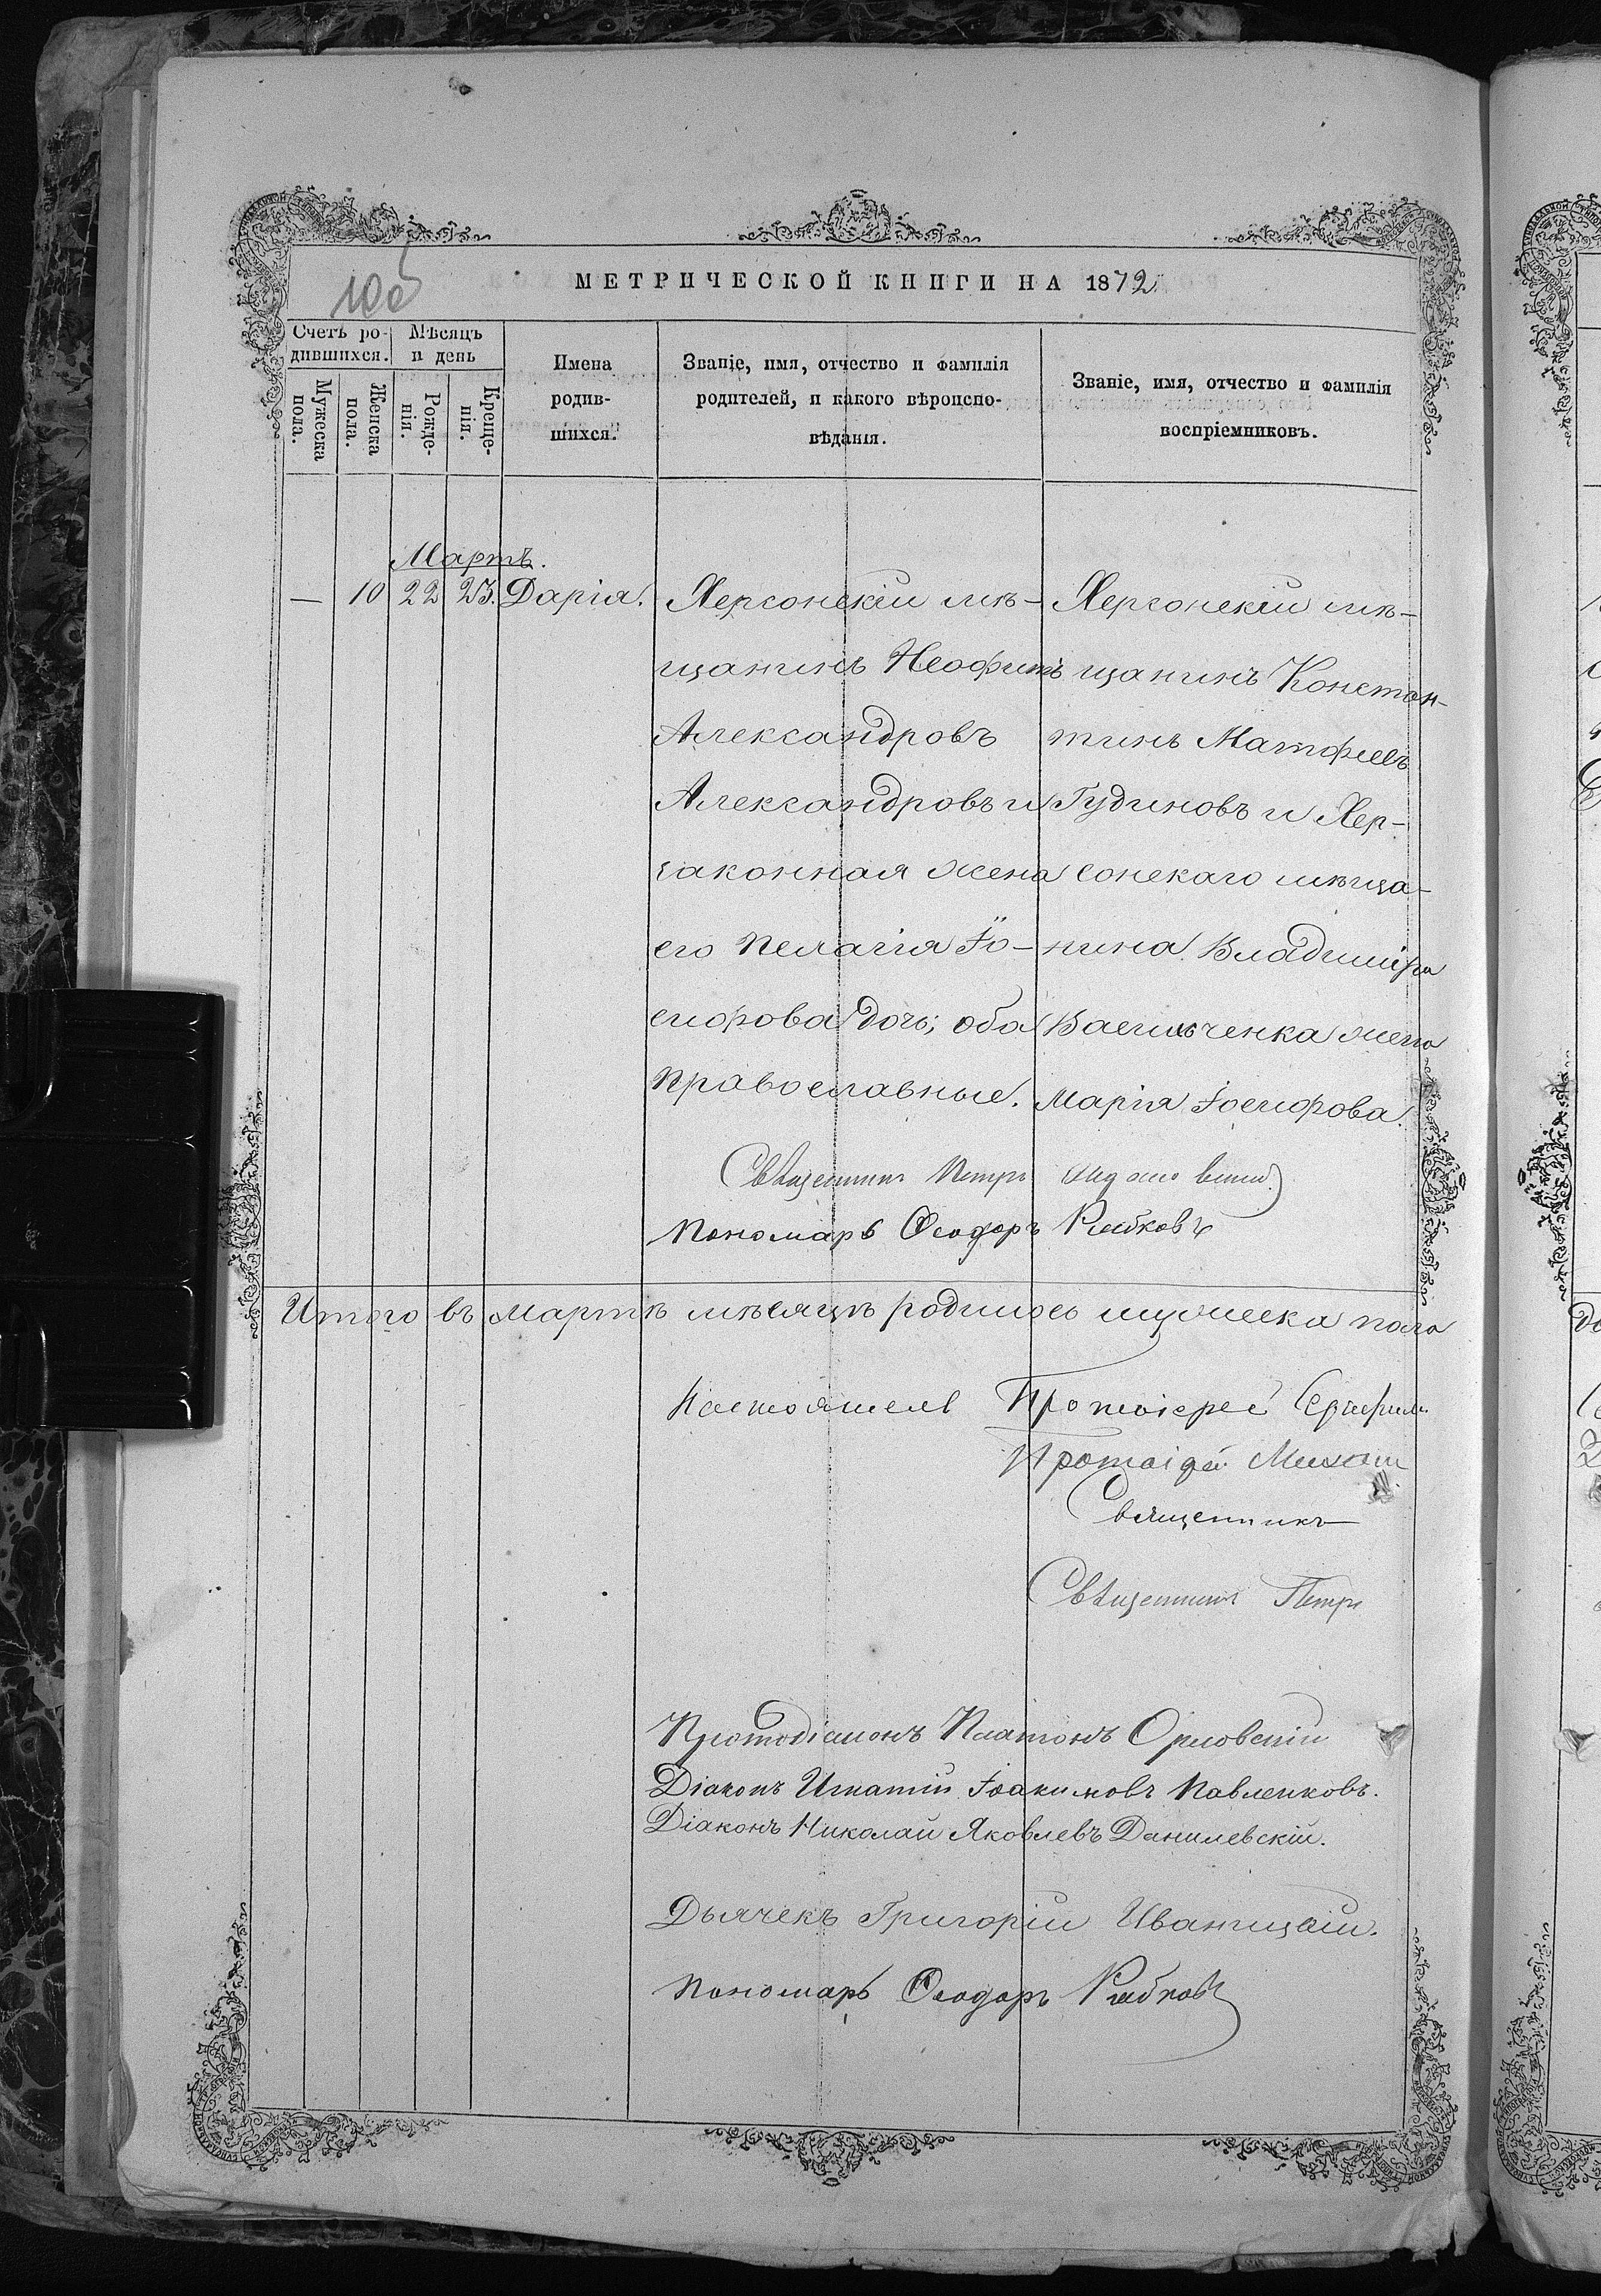 МЕТРИЧЕСКОЙ КНИГИ НА 1872
Счетъ ро-
дившихся.
Мѣсяцъ
и день
Мужеска
пола.
Женска
пола.
Рожде-
нія.
Креще-
нія.
Имена
родив-
шихся.
Званіе, имя, отчество и фамилія
родителей, и какого вѣроиспо-
вѣданія.
Званіе, имя, отчество и фамилія
воспріемниковъ.
Мартъ.
— 10 22 23. Дарія.
Херсонскій мѣ-
щанинъ Неофитъ
Александровъ
Александровъ и
законная жена
его Пелагія Іо-
сифова дочь; оба
православные.
Херсонскій мѣ-
щанинъ Констан-
тинъ Матфеевъ
Гудиновъ и Хер-
сонскаго мѣща-
нина Владиміра
Васильченка жена
Марія Іосифова.
Священникъ Петръ
Пономарь Ѳеодоръ Рыбковъ
Итого въ мартѣ мѣсяцѣ родилось мужеска пола
Настоятель Протоіерей Серафим
Протоіерей Михаил
Священникъ
Священникъ Петръ
Протодіаконъ Платонъ Орловскій
Діаконъ Игнатій Іоакимовъ Павленковъ.
Діаконъ Николай Яковлевъ Данилевскій.
Дьячекъ Григорій Иваницкій.
Пономарь Ѳеодоръ Рыбковъ